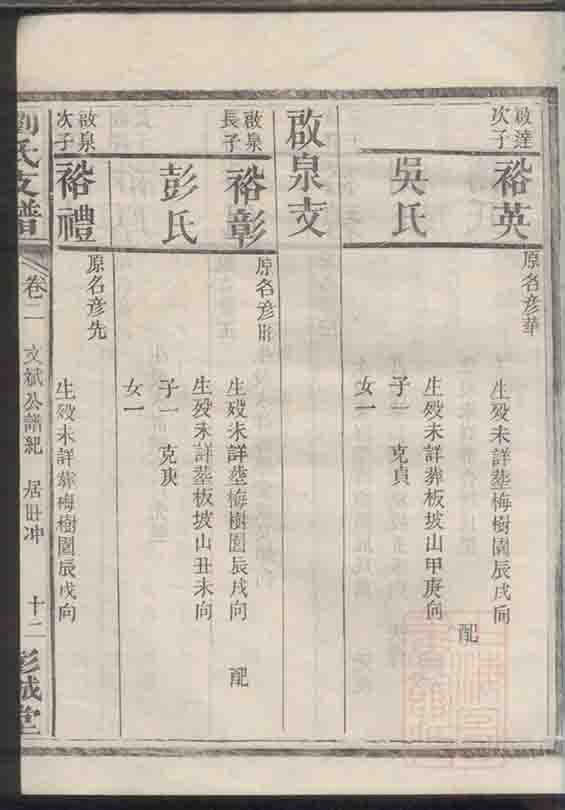 啟達
次子
裕英
原名彦華
生歿未詳塟梅樹園辰戌向
配
吳氏
生歿未詳葬板坡山甲庚向
子一 克貞
女一
啟泉支
啟泉
長子
裕彰
原名彦
生歿未詳塟梅樹園辰戌向 配
彭氏
生歿未詳塟板坡山丑未向
子一 克庚
女一
啟泉
次子
裕禮
原名彦先
生歿未詳葬梅樹園辰戌向
劉氏支譜
卷二 文斌公譜紀 居 冲 十二
彭城堂